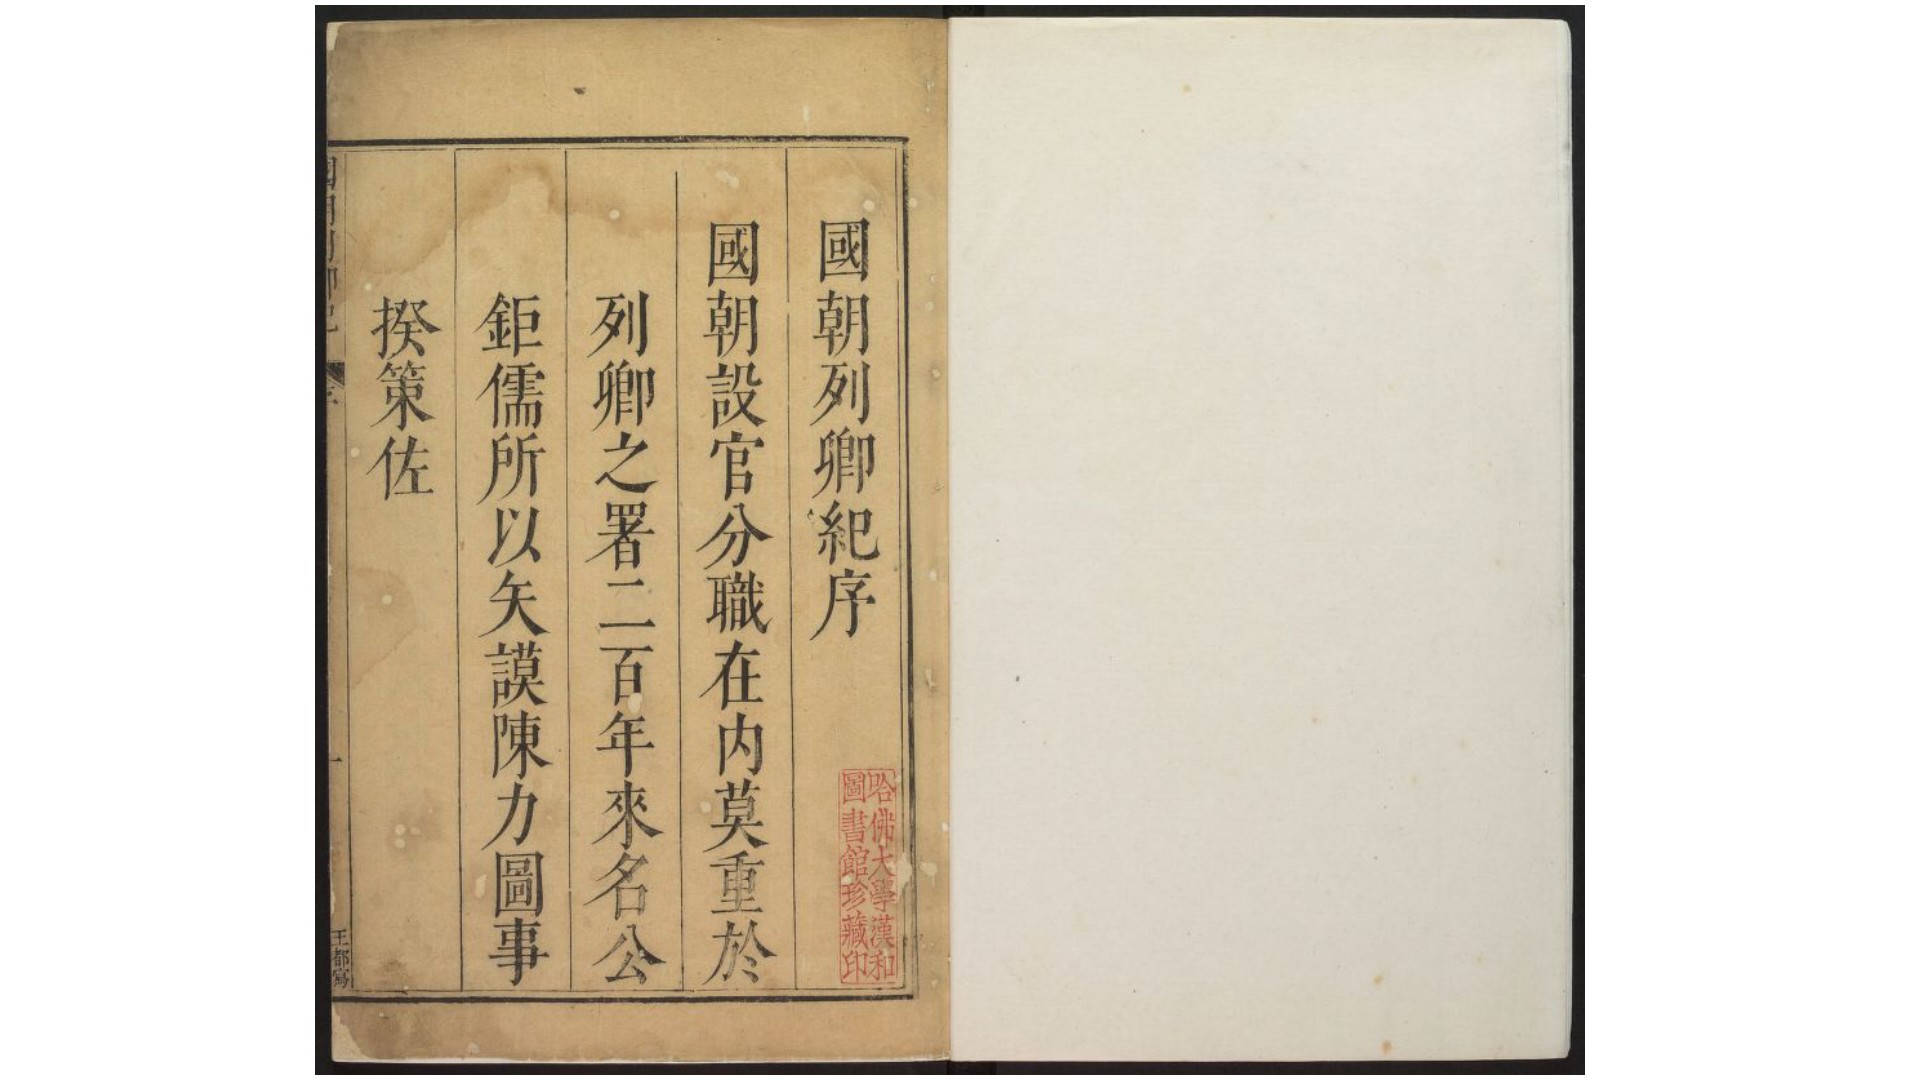 國朝列卿紀序
國朝設官分職在内莫重於
列卿之署二百年來名公
鉅儒所以矢謨陳力圖事
揆策佐
哈佛大學漢和
圖書館珍藏印
王都寫